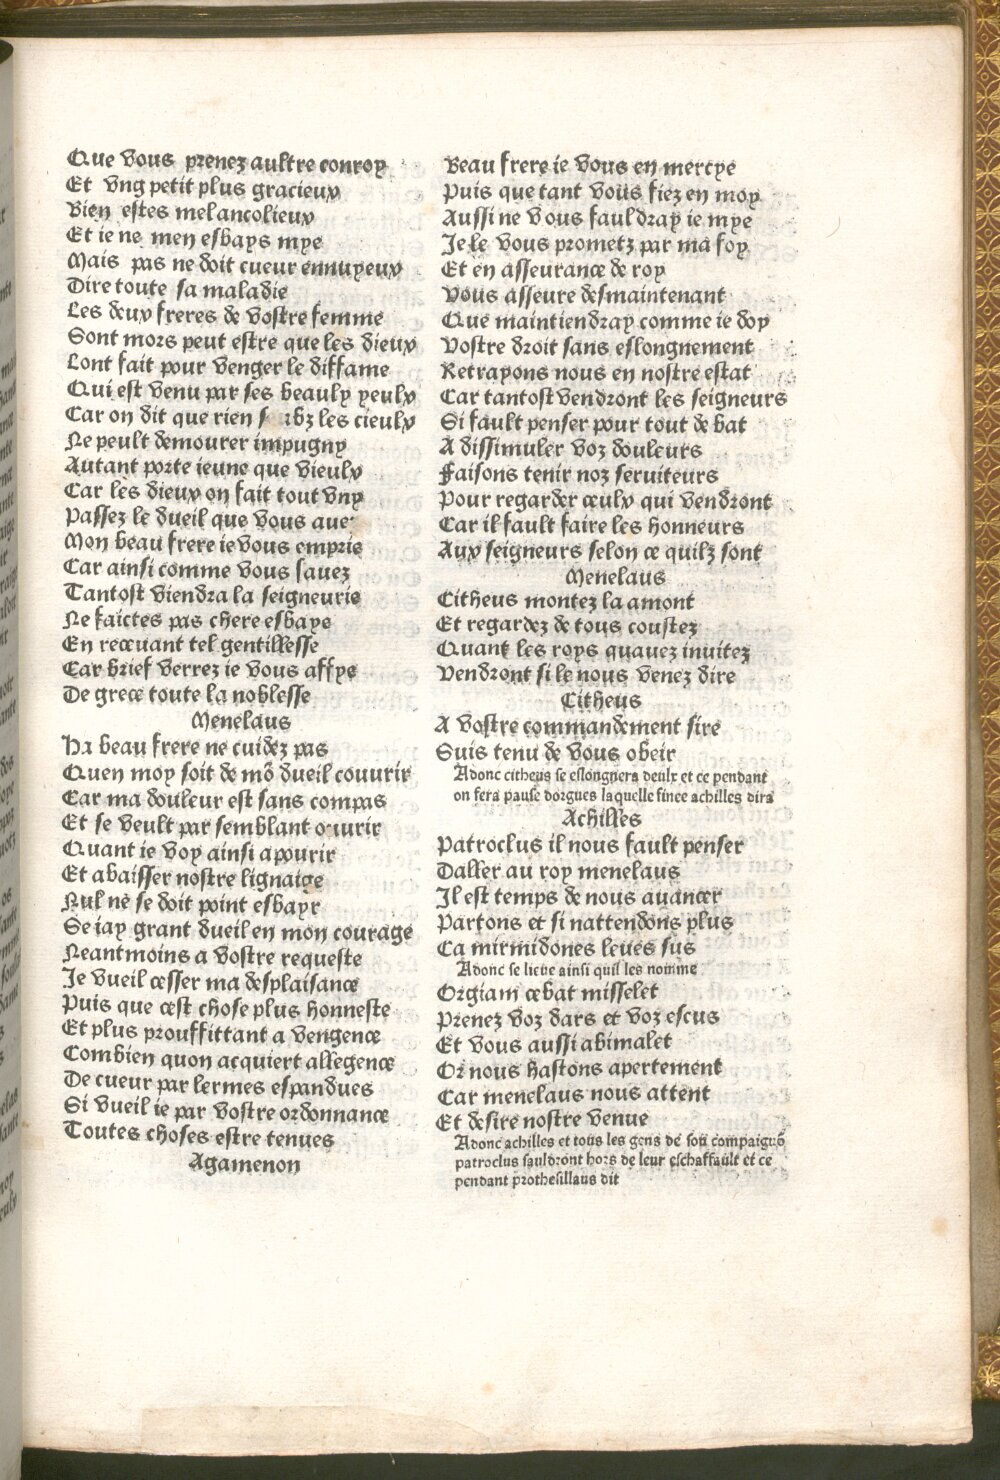 Que vous prenez aultre conroy
Et vng petit plus gracieux
Bien estes melancolieux
Et ie ne men esbays mye
Mais pas ne doit cueur ennuyeux
Dire toute sa maladie
Les deux freres de vostre femme
Sont mors peut estre que les dieux
Lont fait pour venger le diffame
Qui est venu par ses beaulx yeulx
Car on dit que rien les cieulx
Ne peult demourer impugny
Autant porte ieune que vieulx
Car les dieux on fait tout vny
Passez le dueil que vous auez
Mon beau frere ie vous emprie
Car ainsi comme vous sauez
Tantost viendra la seigneurie
Ne faictes pas chere esbaye
En receuant tel gentillesse
Car brief verrez ie vous affye
De grece toute la noblesse
Menelaus
Ha beau frere ne cuidez pas
Quen moy soit de mõ dueil couurir
Car ma douleur est sans compas
Et se veult par semblant ouurir
Quant ie voy ainsi apourir
Et abaisser nostre lignaige
Nul ne se doit point esbayr
Se iay grant dueil en mon courage
Neantmoins a vostre requeste
Je vueil cesser ma desplaisance
Puis que cest chose plus honneste
Et plus prouffittant a vengence
Combien quon acquiert allegence
De cueur par lermes espandues
Si vueil ie par vostre ordonnance
Toutes choses estre tenues
Agamenon
Beau frere ie vous en mercye
Puis que tant vous fiez en moy
Aussi ne vous fauldray ie mye
Je le vous prometz par ma foy
Et en asseurance de roy
Vous asseure desmaintenant
Que maintiendray comme ie doy
Vostre droit sans eslongnement
Retrayons nous en nostre estat
Car tantost vendront les seigneurs
Si fault penser pour tout debat
A dissimuler voz douleurs
Faisons tenir noz seruiteurs
Pour regarder ceulx qui vendront
Car il fault faire les honneurs
Aux seigneurs selon ce quilz sont
Menelaus
Citheus montez la amont
Et regardez de tous coustez
Quant les roys quauez inuitez
Vendront si le nous venez dire
Citheus
A vostre commandement sire
Suis tenu de vous obeir
Adonc citheus se eslongnera deulx et ce pendant
on fera pause dorgues laquelle finee achilles dira
Achilles
Patroclus il nous fault penser
Daller au roy menelaus
Il est temps de nous auancer
Partons et si nattendons plus
Ca mirmidones leues sus
Adonc se lieue ainsi quil les nomme
Orgiam cebat misselet
Prenez voz dars et voz escus
Et vous aussi abimalet
Or nous hastons apertement
Car menelaus nous attent
Et desire nostre venue
Adonc achilles et tous les gens de son compaignõ
patroclus sauldront hors de leur eschaffault et ce
pendant prothesillaus dit